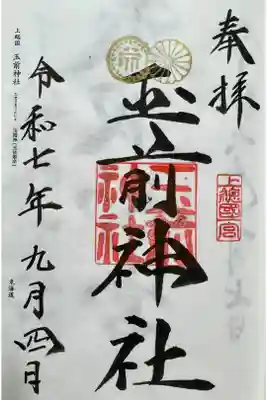 奉拝
上総国一宮
玉前神社
玉前神社
令和七年九月四日
上総国 玉前神社